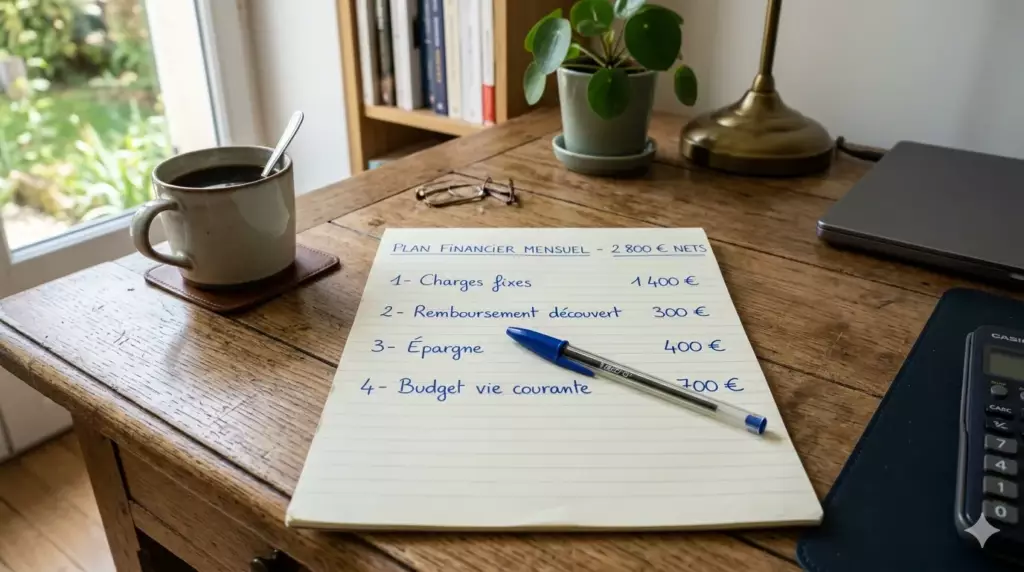 PLAN FINANCIER MENSUEL - 2 800 € NETS
1- Charges fixes 1 400 €
2- Remboursement découvert 300 €
3- Épargne 400 €
4- Budget vie courante 700 €
CASIO
7
4
1
0